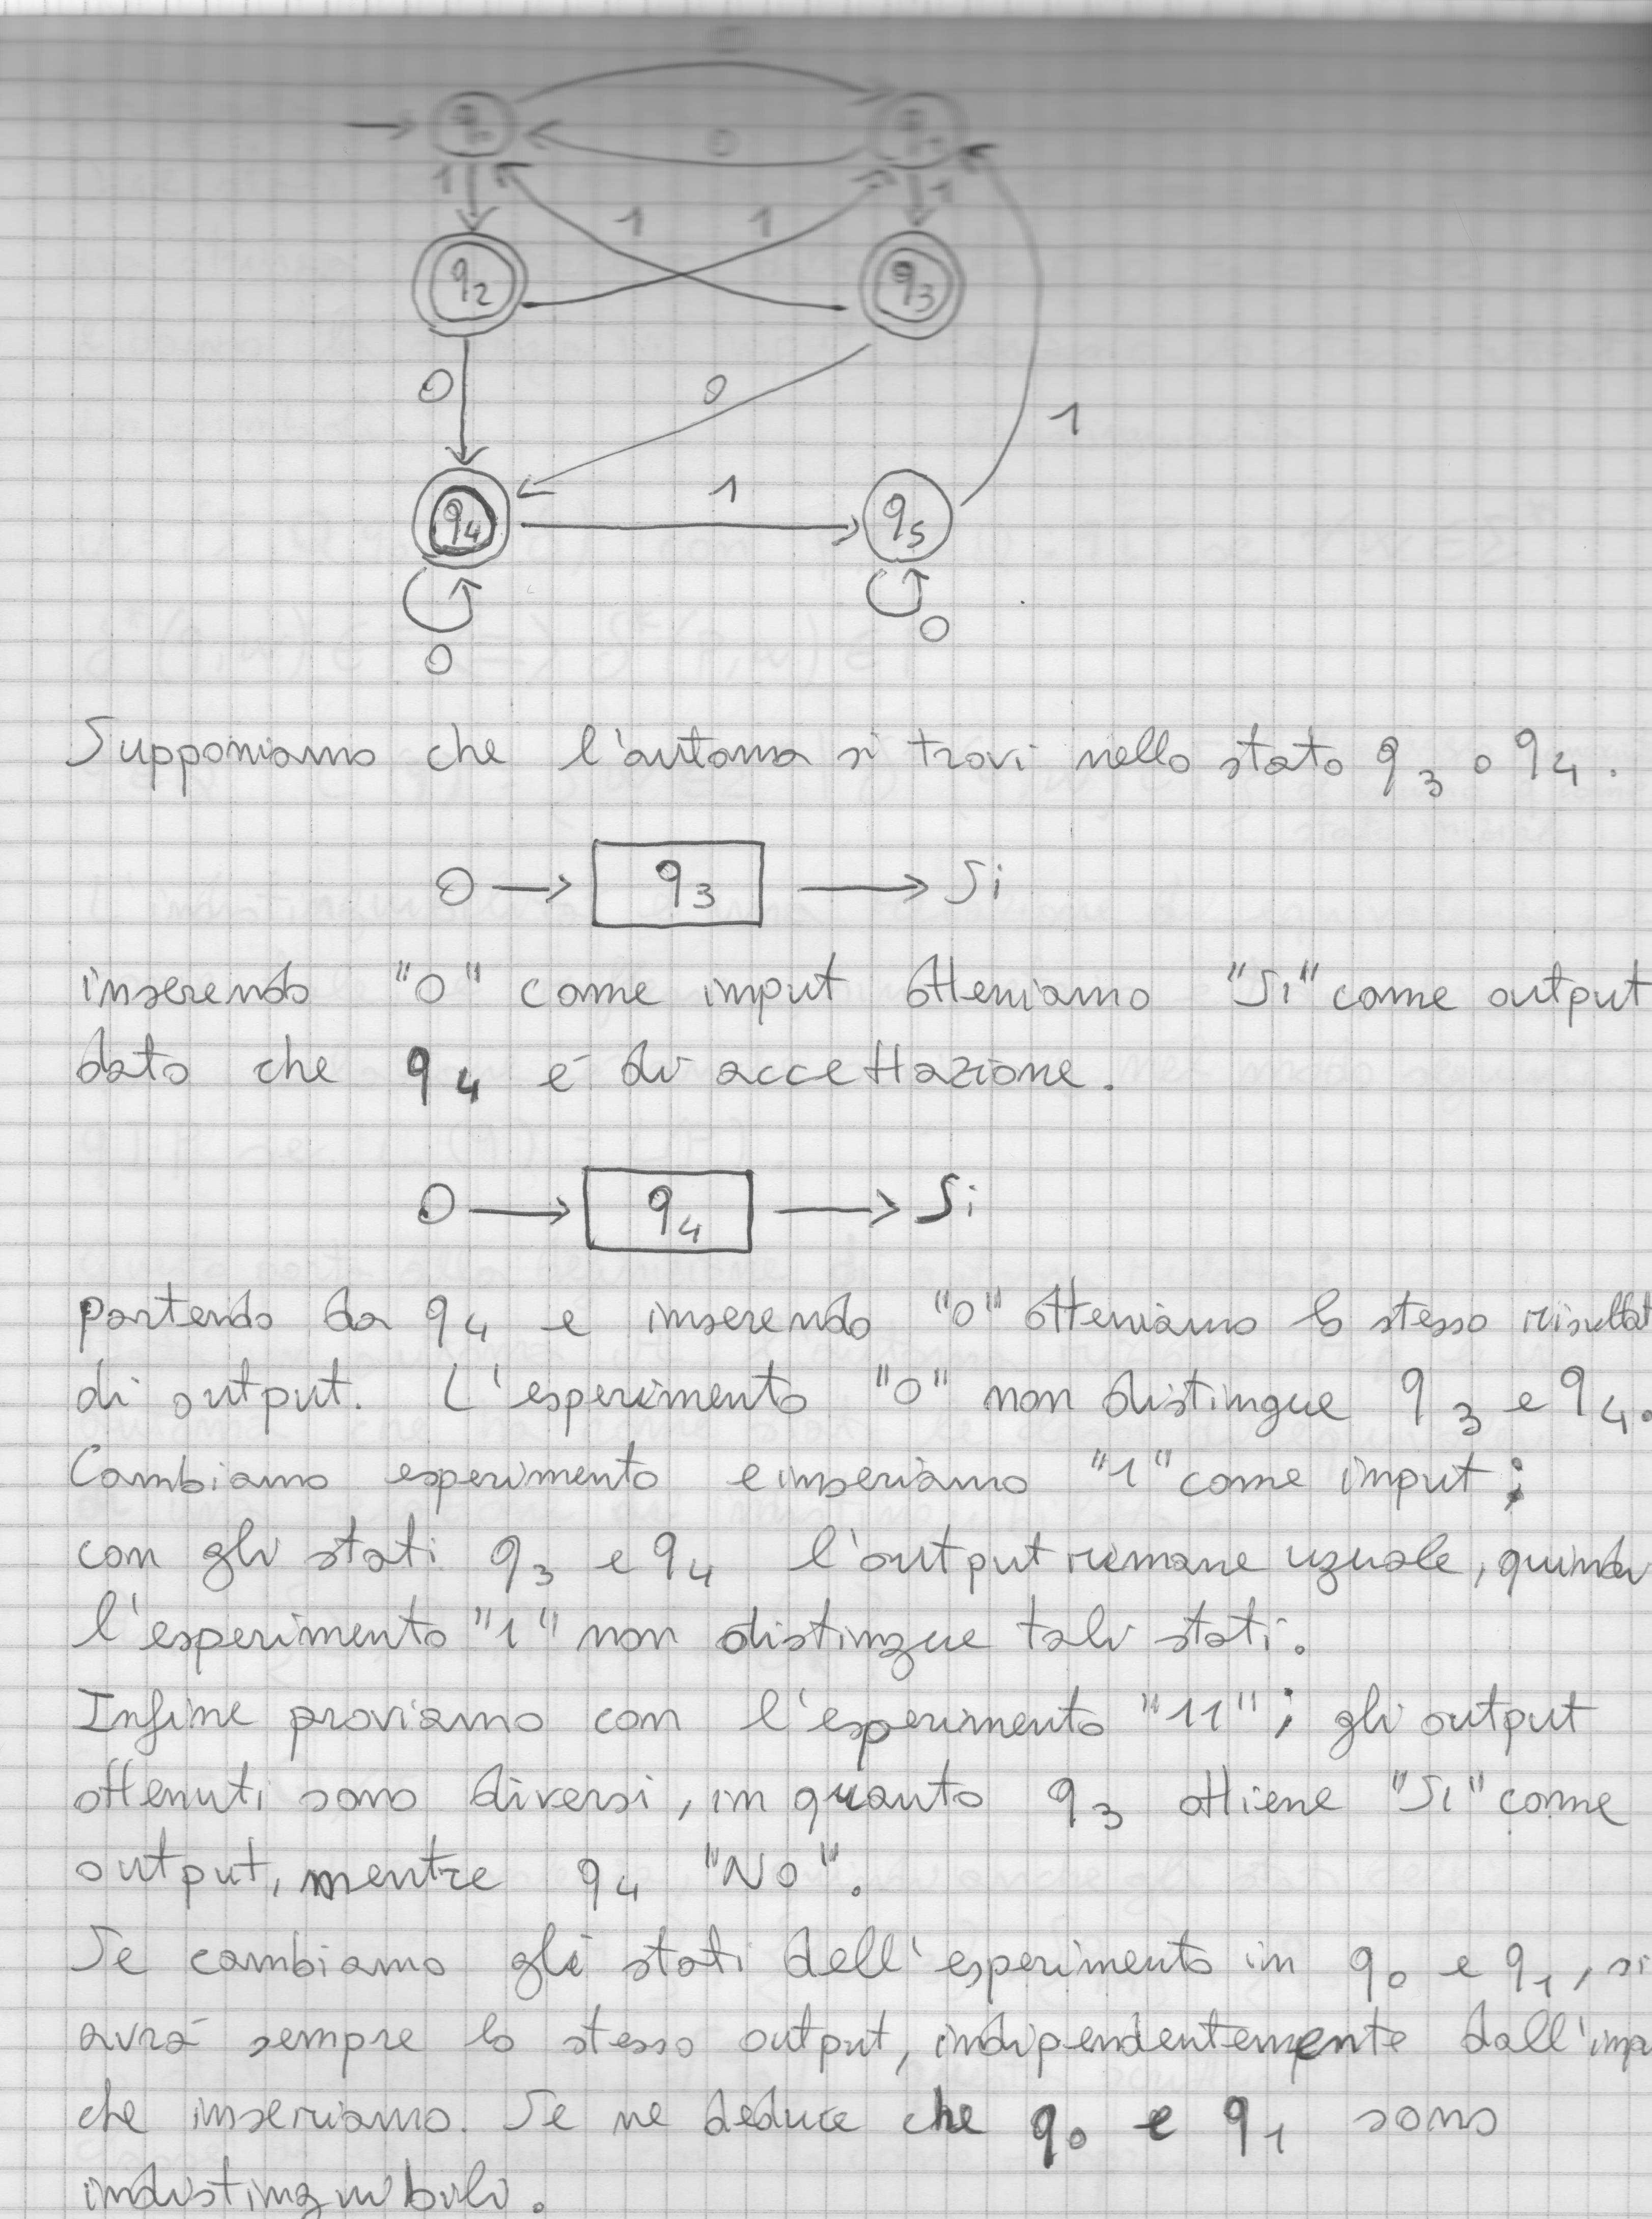 0
q0 0 q1
1 1 1 1
q2 q3
0 0 1
q4 1 q5
0 0
Supponiamo che l'automa si trovi nello stato q3 o q4.
0 → q3 → Si
inserendo "0" come input otteniamo "Si" come output
dato che q4 é di accettazione.
0 → q4 → Si
partendo da q4 e inserendo "0" otteniamo lo stesso risultat
di output. L'esperimento "0" non distingue q3 e q4.
Cambiamo esperimento e inseriamo "1" come input;
con gli stati q3 e q4 l'output rimane uguale, quindi
l'esperimento "1" non distingue tali stati.
Infine proviamo con l'esperimento "11"; gli output
ottenuti sono diversi, in quanto q3 ottiene "Si" come
output, mentre q4 "No".
Se cambiamo gli stati dell'esperimento in q0 e q1, si
avrá sempre lo stesso output, indipendentemente dall'inpu
che inseriamo. Se ne deduce che q0 e q1 sono
indistinguibili.